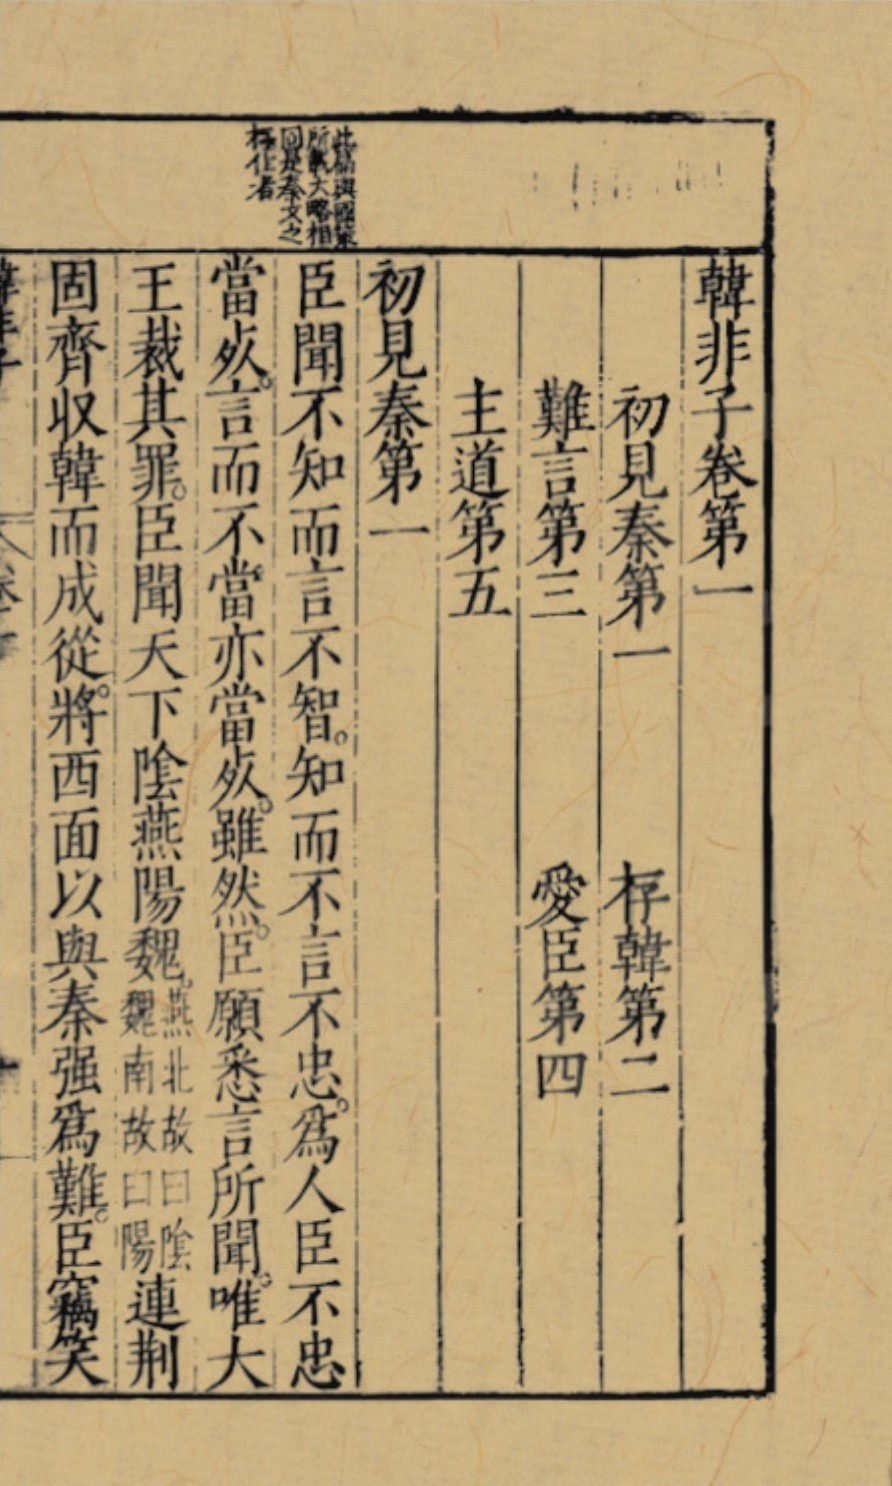 韓非子卷第一
初見秦第一 存韓第二
難言第三 愛臣第四
主道第五
初見秦第一
此篇與國策
所載大略相
同是秦文之
存仕者
臣聞不知而言不智。知而不言不忠。爲人臣不忠
當死。言而不當亦當死。雖然。臣願悉言所聞。唯大
王裁其罪。臣聞天下陰燕陽魏。燕北故曰陰魏南故曰陽連荆
固齊收韓而成從。將西面以與秦强爲難。臣竊笑
韓非子
卷一